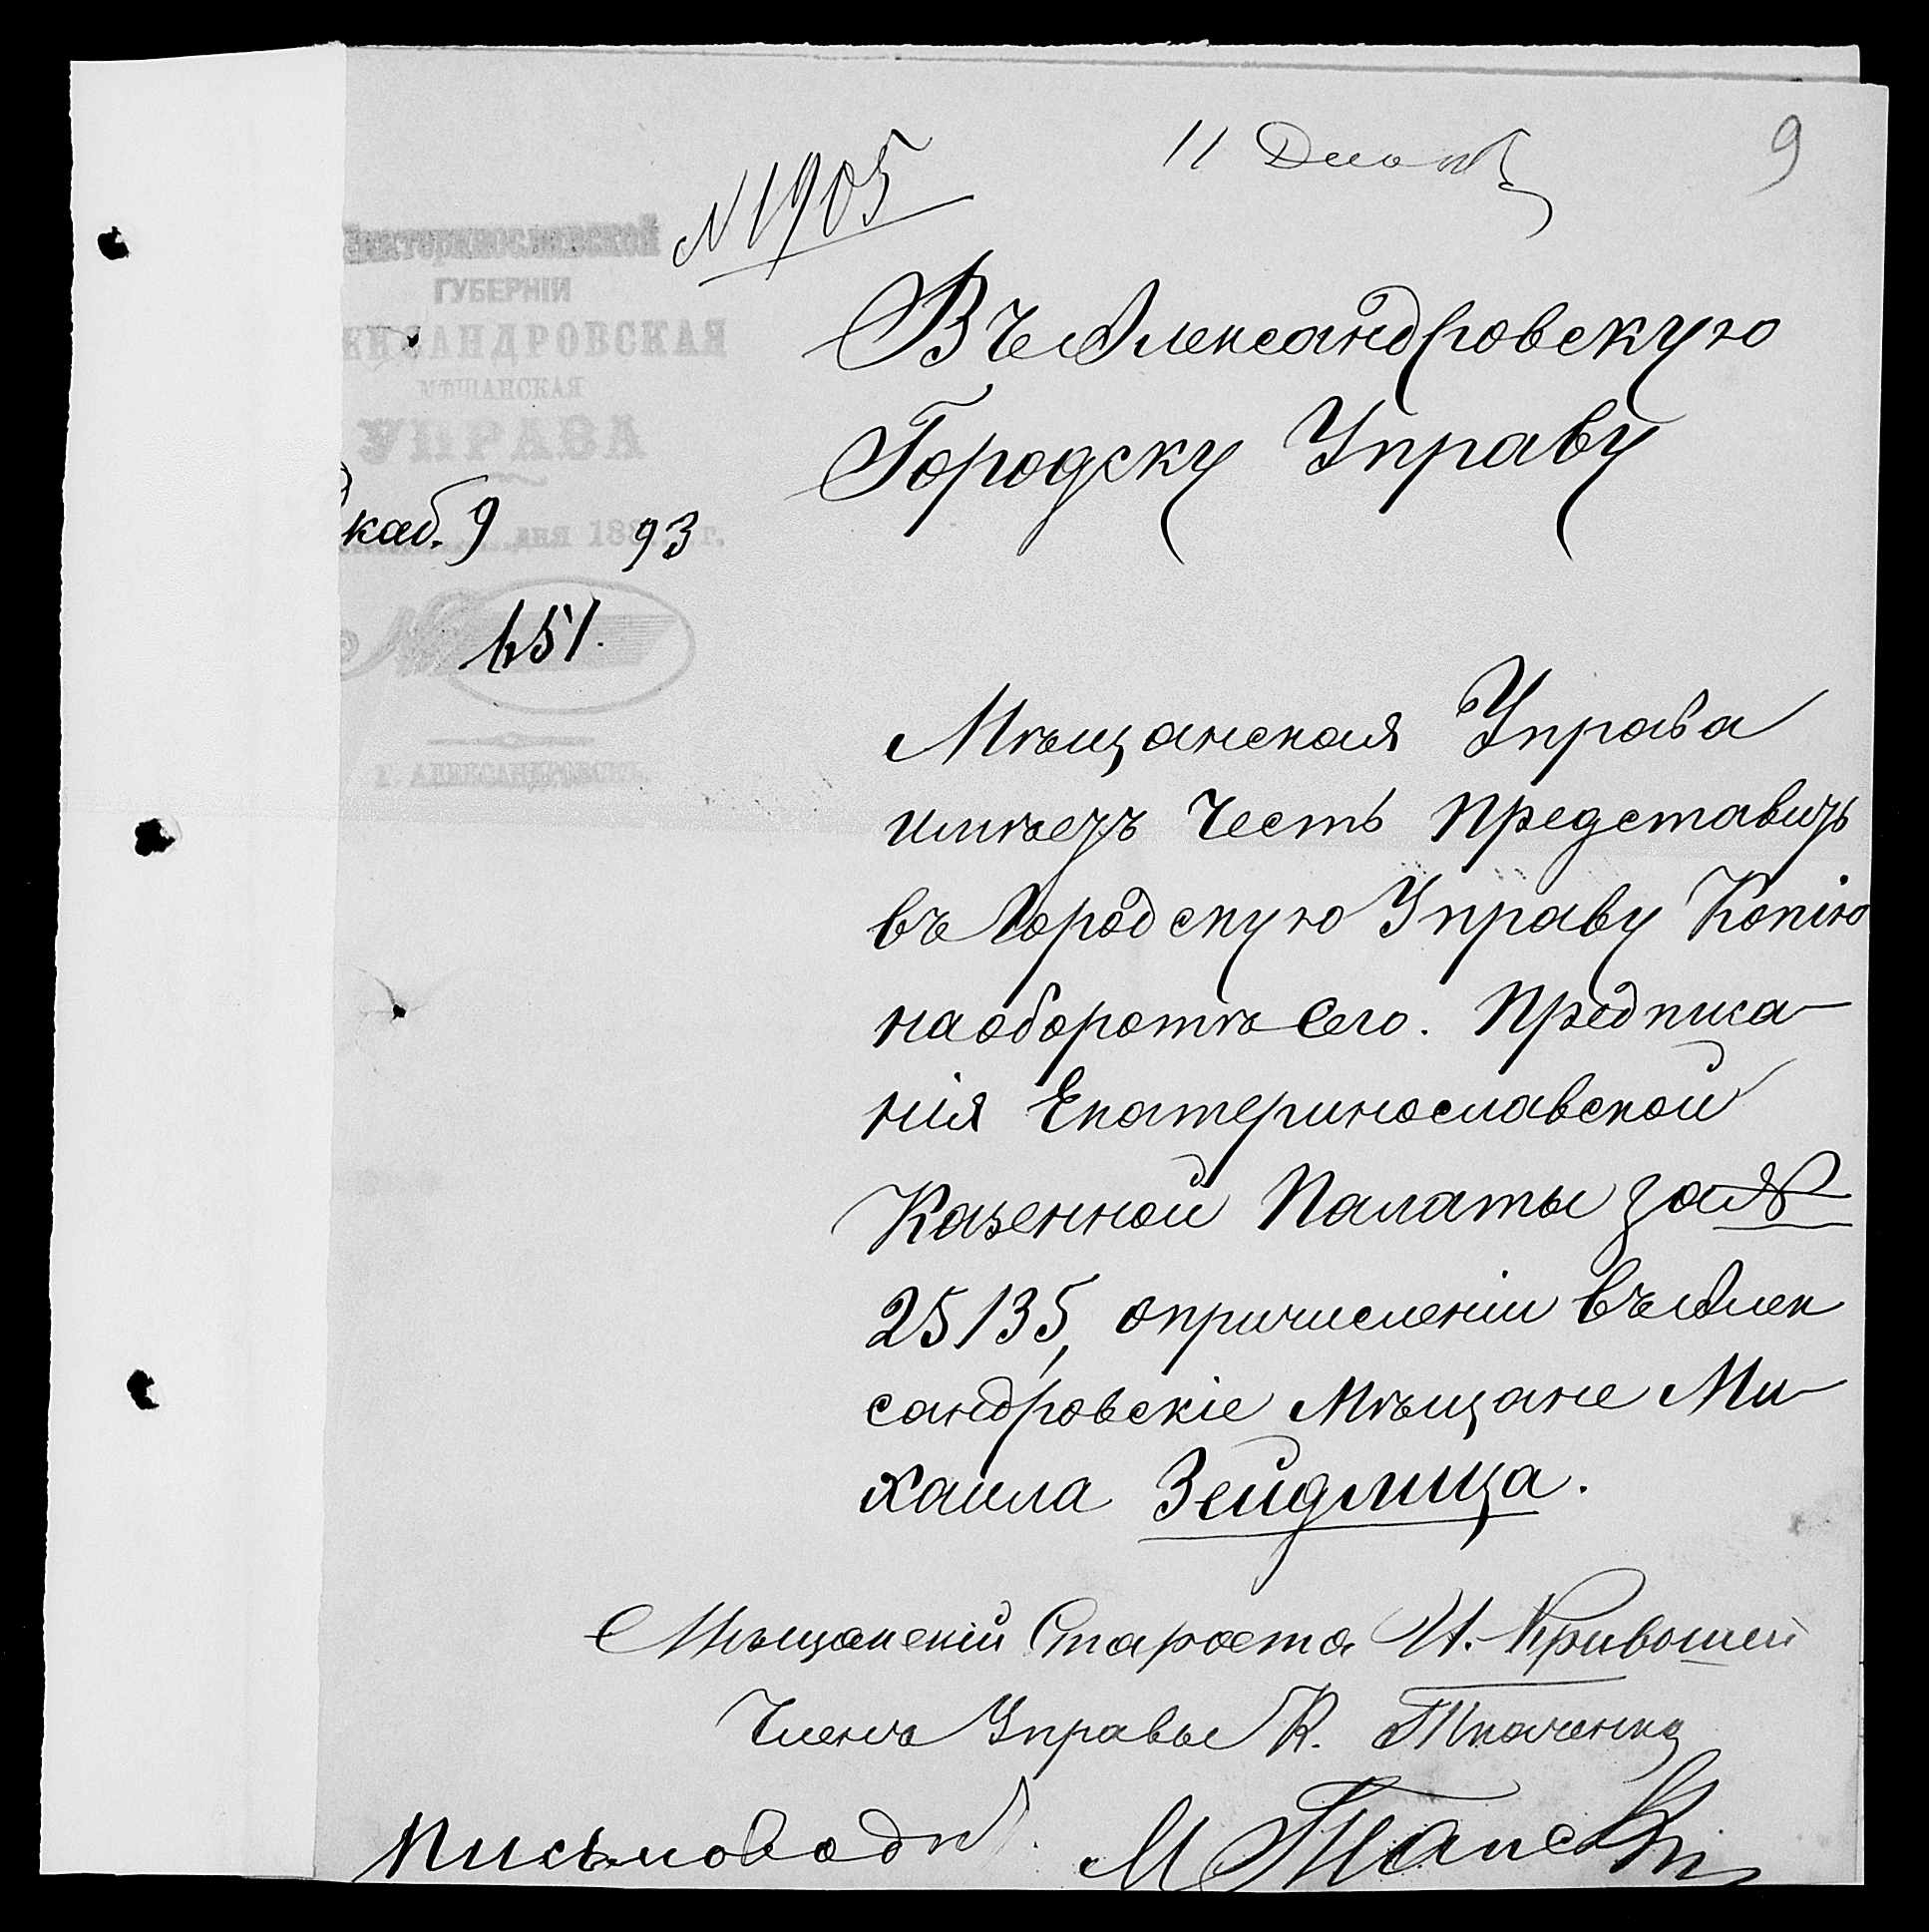 11 Дека
9
N 1905
Екатеринославской
ГУБЕРНІИ
ЕКСАНДРОВСКАЯ
МѢЩАНСКАЯ
УПРАВА
каб. 9 дня 188 93 г.
№ 651.
г. АЛЕКСАНДРОВСКЪ.
Въ Александровскую
Городску Управу
Мѣщанская Управа
имѣетъ честь представить
въ Городскую Управу Копію
на оборотѣ сего. Предписа-
нія Екатеринославской
Казенной Палаты за №
25135, о причисленіи въ Алек
сандровскіе Мѣщане Ми-
хаила Зейдлица.
Мѣщанскій Староста И. Кривошей
Членъ Управы К. Ткаченко
Письмовод М